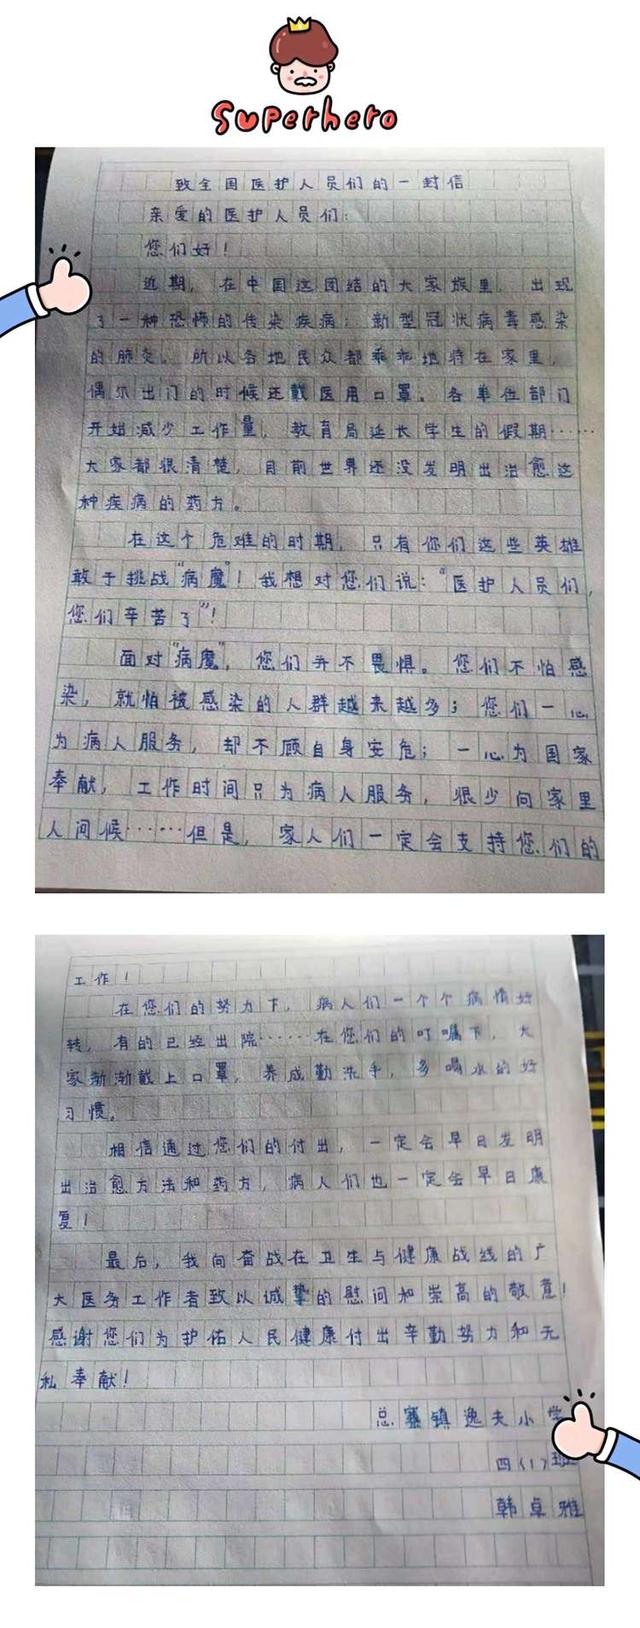 Superhero
致全国医护人员们的一封信
亲爱的医护人员们:
您们好!
近期,在中国这团结的大家族里,出现
了一种恐怖的传染疾病:新型冠状病毒感染
的肺炎。所以各地民众都乖乖地待在家里,
偶尔出门的时候还戴医用口罩。各单位部门
开始减少工作量,教育局延长学生的假期……
大家都很清楚,目前世界还没发明出治愈这
种疾病的药方。
在这个危难的时期,只有你们这些英雄
敢于挑战“病魔”!我想对您们说:“医护人员们,
您们辛苦了”!
面对“病魔”,您们并不畏惧。您们不怕感
染,就怕被感染的人群越来越多;您们一心
为病人服务,却不顾自身安危;一心为国家
奉献,工作时间只为病人服务,很少向家里
人问候……但是,家人们一定会支持您们的
工作!
在您们的努力下,病人们一个个病情好
转,有的已经出院……在您们的叮嘱下,大
家渐渐戴上口罩,养成勤洗手,多喝水的好
习惯。
相信通过您们的付出,一定会早日发明
出治愈方法和药方,病人们也一定会早日康
复!
最后,我向奋战在卫生与健康战线的广
大医务工作者致以诚挚的慰问和崇高的敬意!
感谢您们为护佑人民健康付出辛勤努力和无
私奉献!
总寨镇逸夫小学
四(1)班
韩卓雅